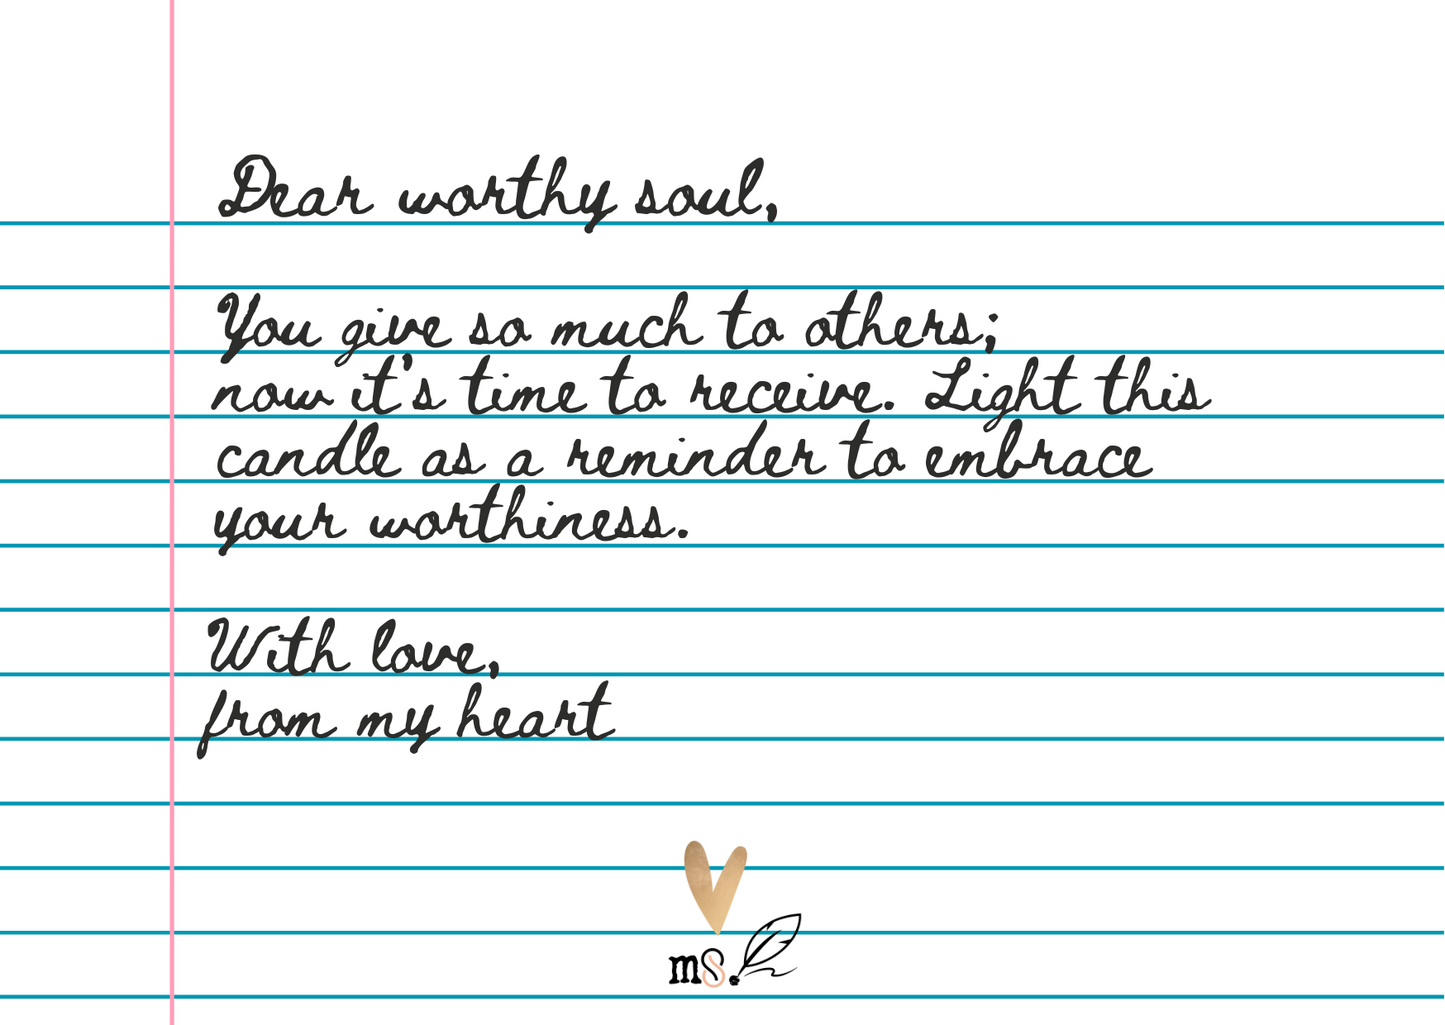 Dear worthy soul,
You give so much to others;
now it's time to receive. Light this
candle as a reminder to embrace
your worthiness.
With love,
from my heart
ms.